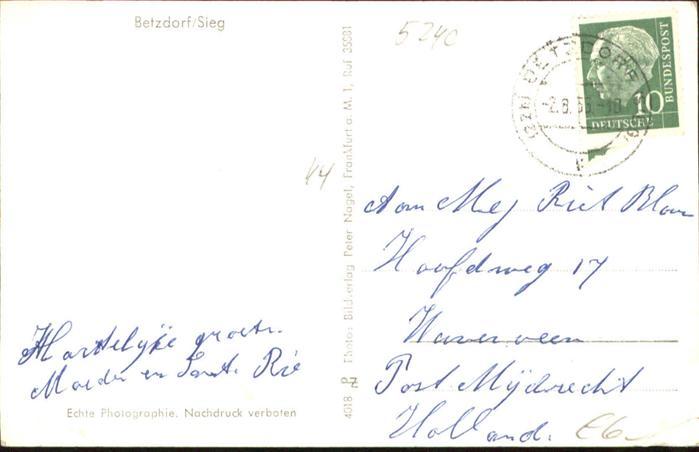 Betzdorf/Sieg
5240
BETZDORF
-2.8.56.-18
10
DEUTSCHE
BUNDESPOST
44
Aan Mej Riet Blom
Hoofdweg 17
Waverveen
Post Mijdrecht
Holland. E6
Hartelijke groeten
Moeder en Tante Rie
Echte Photographie. Nachdruck verboten
4018 Photo: Bild-verlag Peter Nagel, Frankfurt a. M. 1, Ruf 35581